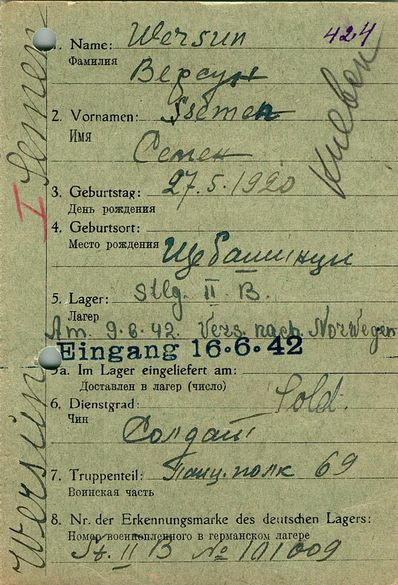 424
1. Name: Wersun
Фамилия
Версун
2. Vornamen: Ssemen
Имя
Семен
3. Geburtstag: 27.5.1920
День рождения
4. Geburtsort:
Место рождения
5. Lager: Stlg. II B.
Лагер
Am. 9.6.42. Vers. nach Norwegen
Eingang 16.6.42
5a. Im Lager eingeliefert am:
Доставлен в лагер (число)
6. Dienstgrad: Sold.
Чин
Солдат
7. Truppenteil: Танц. полк 69
Воинская часть
8. Nr. der Erkennungsmarke des deutschen Lagers:
Номер военнопленного в германском лагере
St. II B № 101009
Wersun I Semen